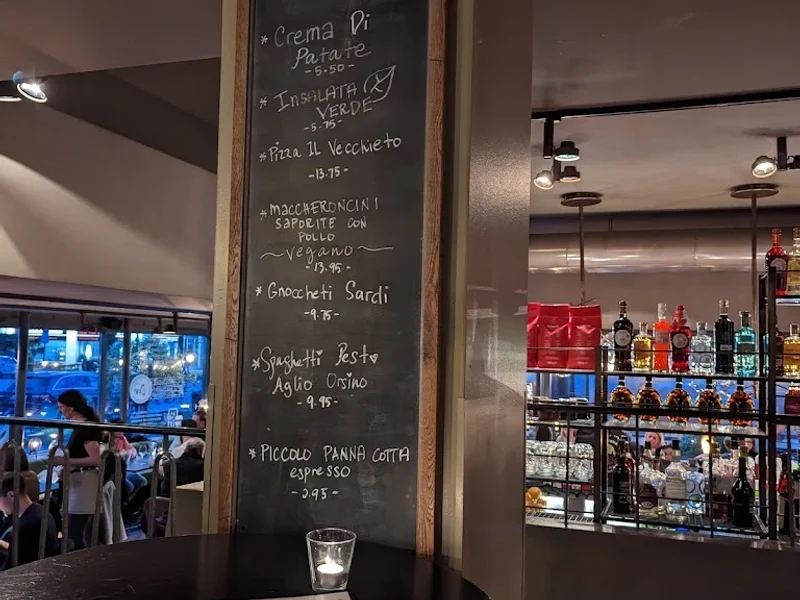 * Crema Di
Patate
-5.50-
* INSALATA
VERDE
-5.75-
* Pizza IL Vecchieto
-13.75-
* MACCHERONCINI
SAPORITE CON
POLLO
~ vegano ~
-13.95-
* Gnoccheti Sardi
-9.75-
* Spaghetti Pesto
Aglio Orsino
-9.95-
* PICCOLO PANNA COTTA
espresso
-2.95-